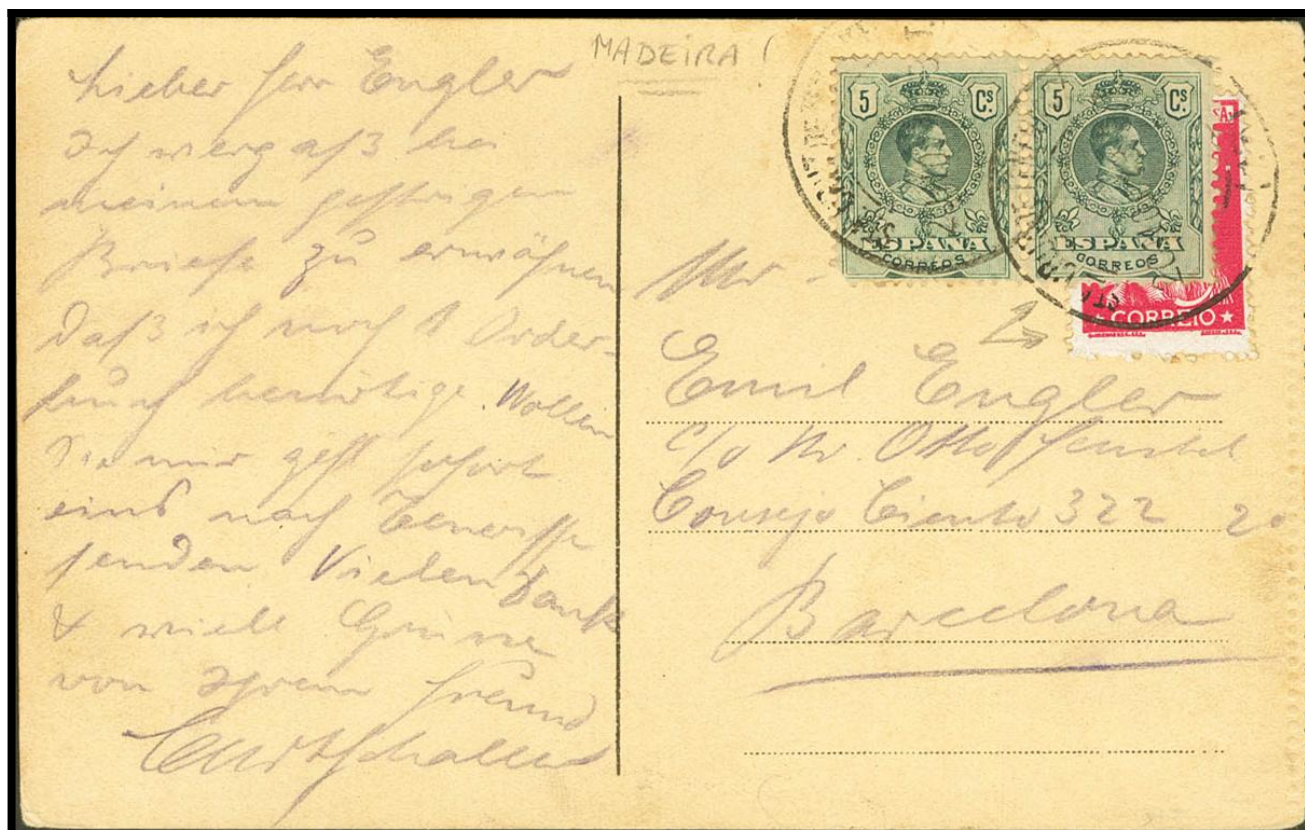 MADEIRA (
Lieber Herr Engler
Ich vergaß bei
meinem gestrigen
Briefe zu erwähnen
daß ich noch 1
benötige. Wollen
Sie mir gefl sofort
eins nach Teneriffe
senden Vielen Dank
& viele Grüsse
von Ihrem Freund
5 Cs.
ESPAÑA
CORREOS
5 Cs.
ESPAÑA
CORREOS
★ CORREIO ★
Mr.
Emil Engler
c/o Mr. Otto
Consejo Ciento 322 2º
Barcelona